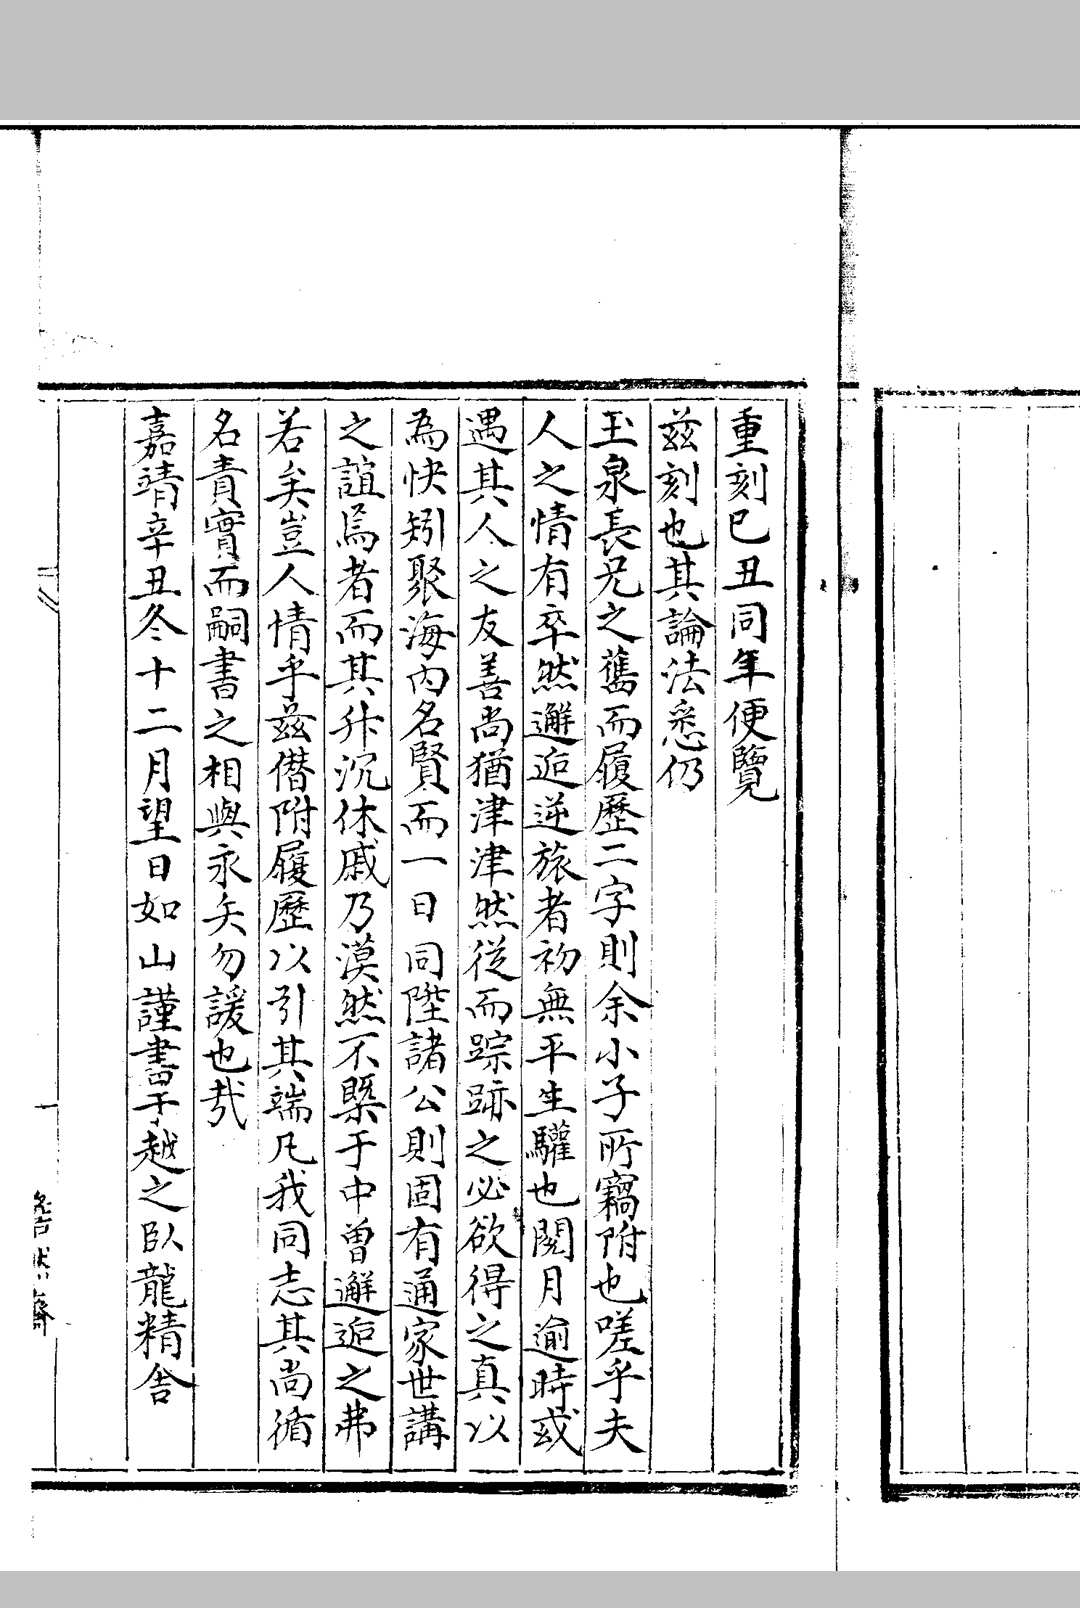 重刻己丑同年便覽
茲刻也其論法悉仍
玉泉長兄之舊而履歷二字則余小子所竊附也嗟乎夫
人之情有卒然邂逅逆旅者初無平生驩也閱月逾時或
遇其人之友善尚猶津津然從而踪跡之必欲得之真以
為快矧聚海內名賢而一日同陞諸公則固有通家世講
之誼焉者而其升沉休戚乃漠然不槩于中曾邂逅之弗
若矣豈人情乎茲僭附履歷以引其端凡我同志其尚循
名責實而嗣書之相與永矢勿諼也哉
嘉靖辛丑冬十二月望日如山謹書于越之臥龍精舍
一